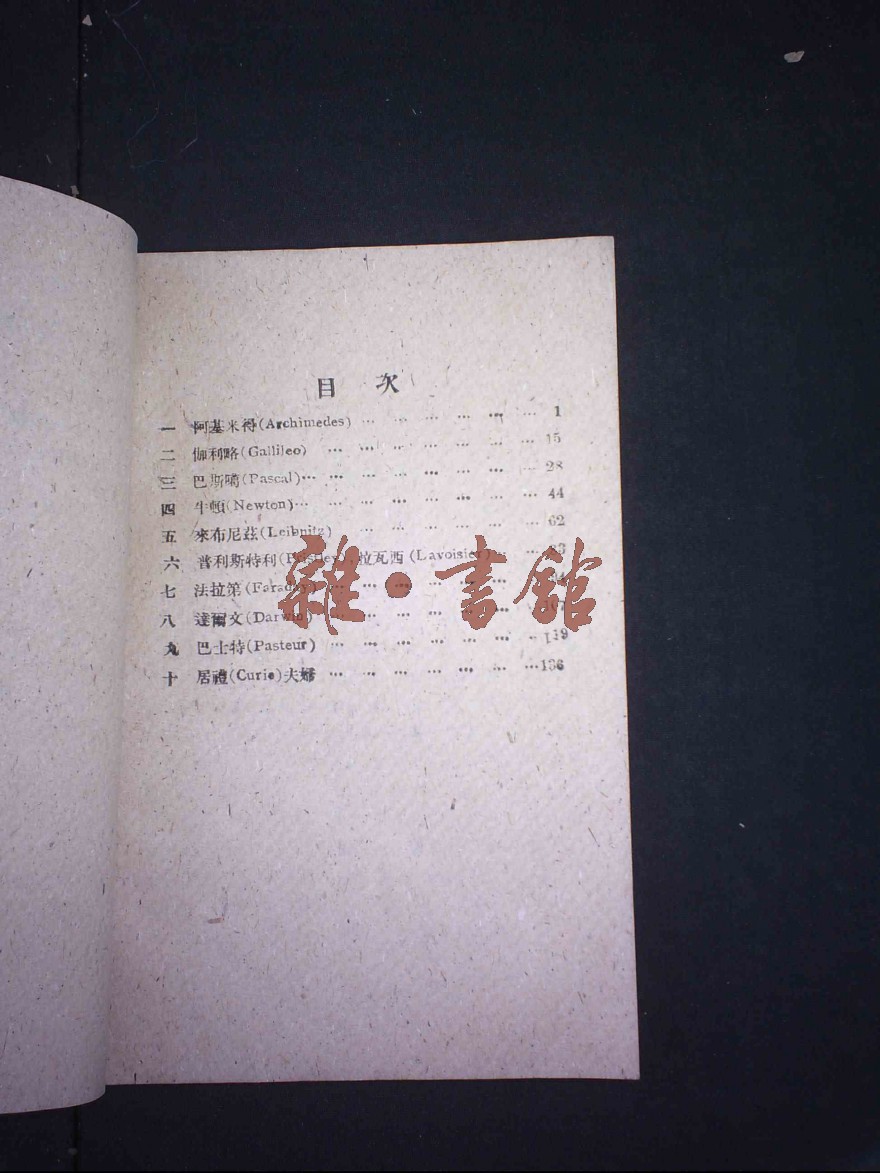 目次
一 阿基米得(Archimedes) … … … … … … 1
二 伽利略(Gallileo) … … … … … … 15
三 巴斯噶(Pascal)… … … … … … … 28
四 牛頓(Newton)… … … … … … … 44
五 來布尼茲(Leibnitz) … … … … … … 62
六 普利斯特利 拉瓦西(Lavoisier)
七 法拉第(Faraday) … … … … … …
八 達爾文(Darwin) … … … … … …
九 巴士特(Pasteur) … … … … … … 119
十 居禮(Curie)夫婦 … … … … … …136
雜·書館